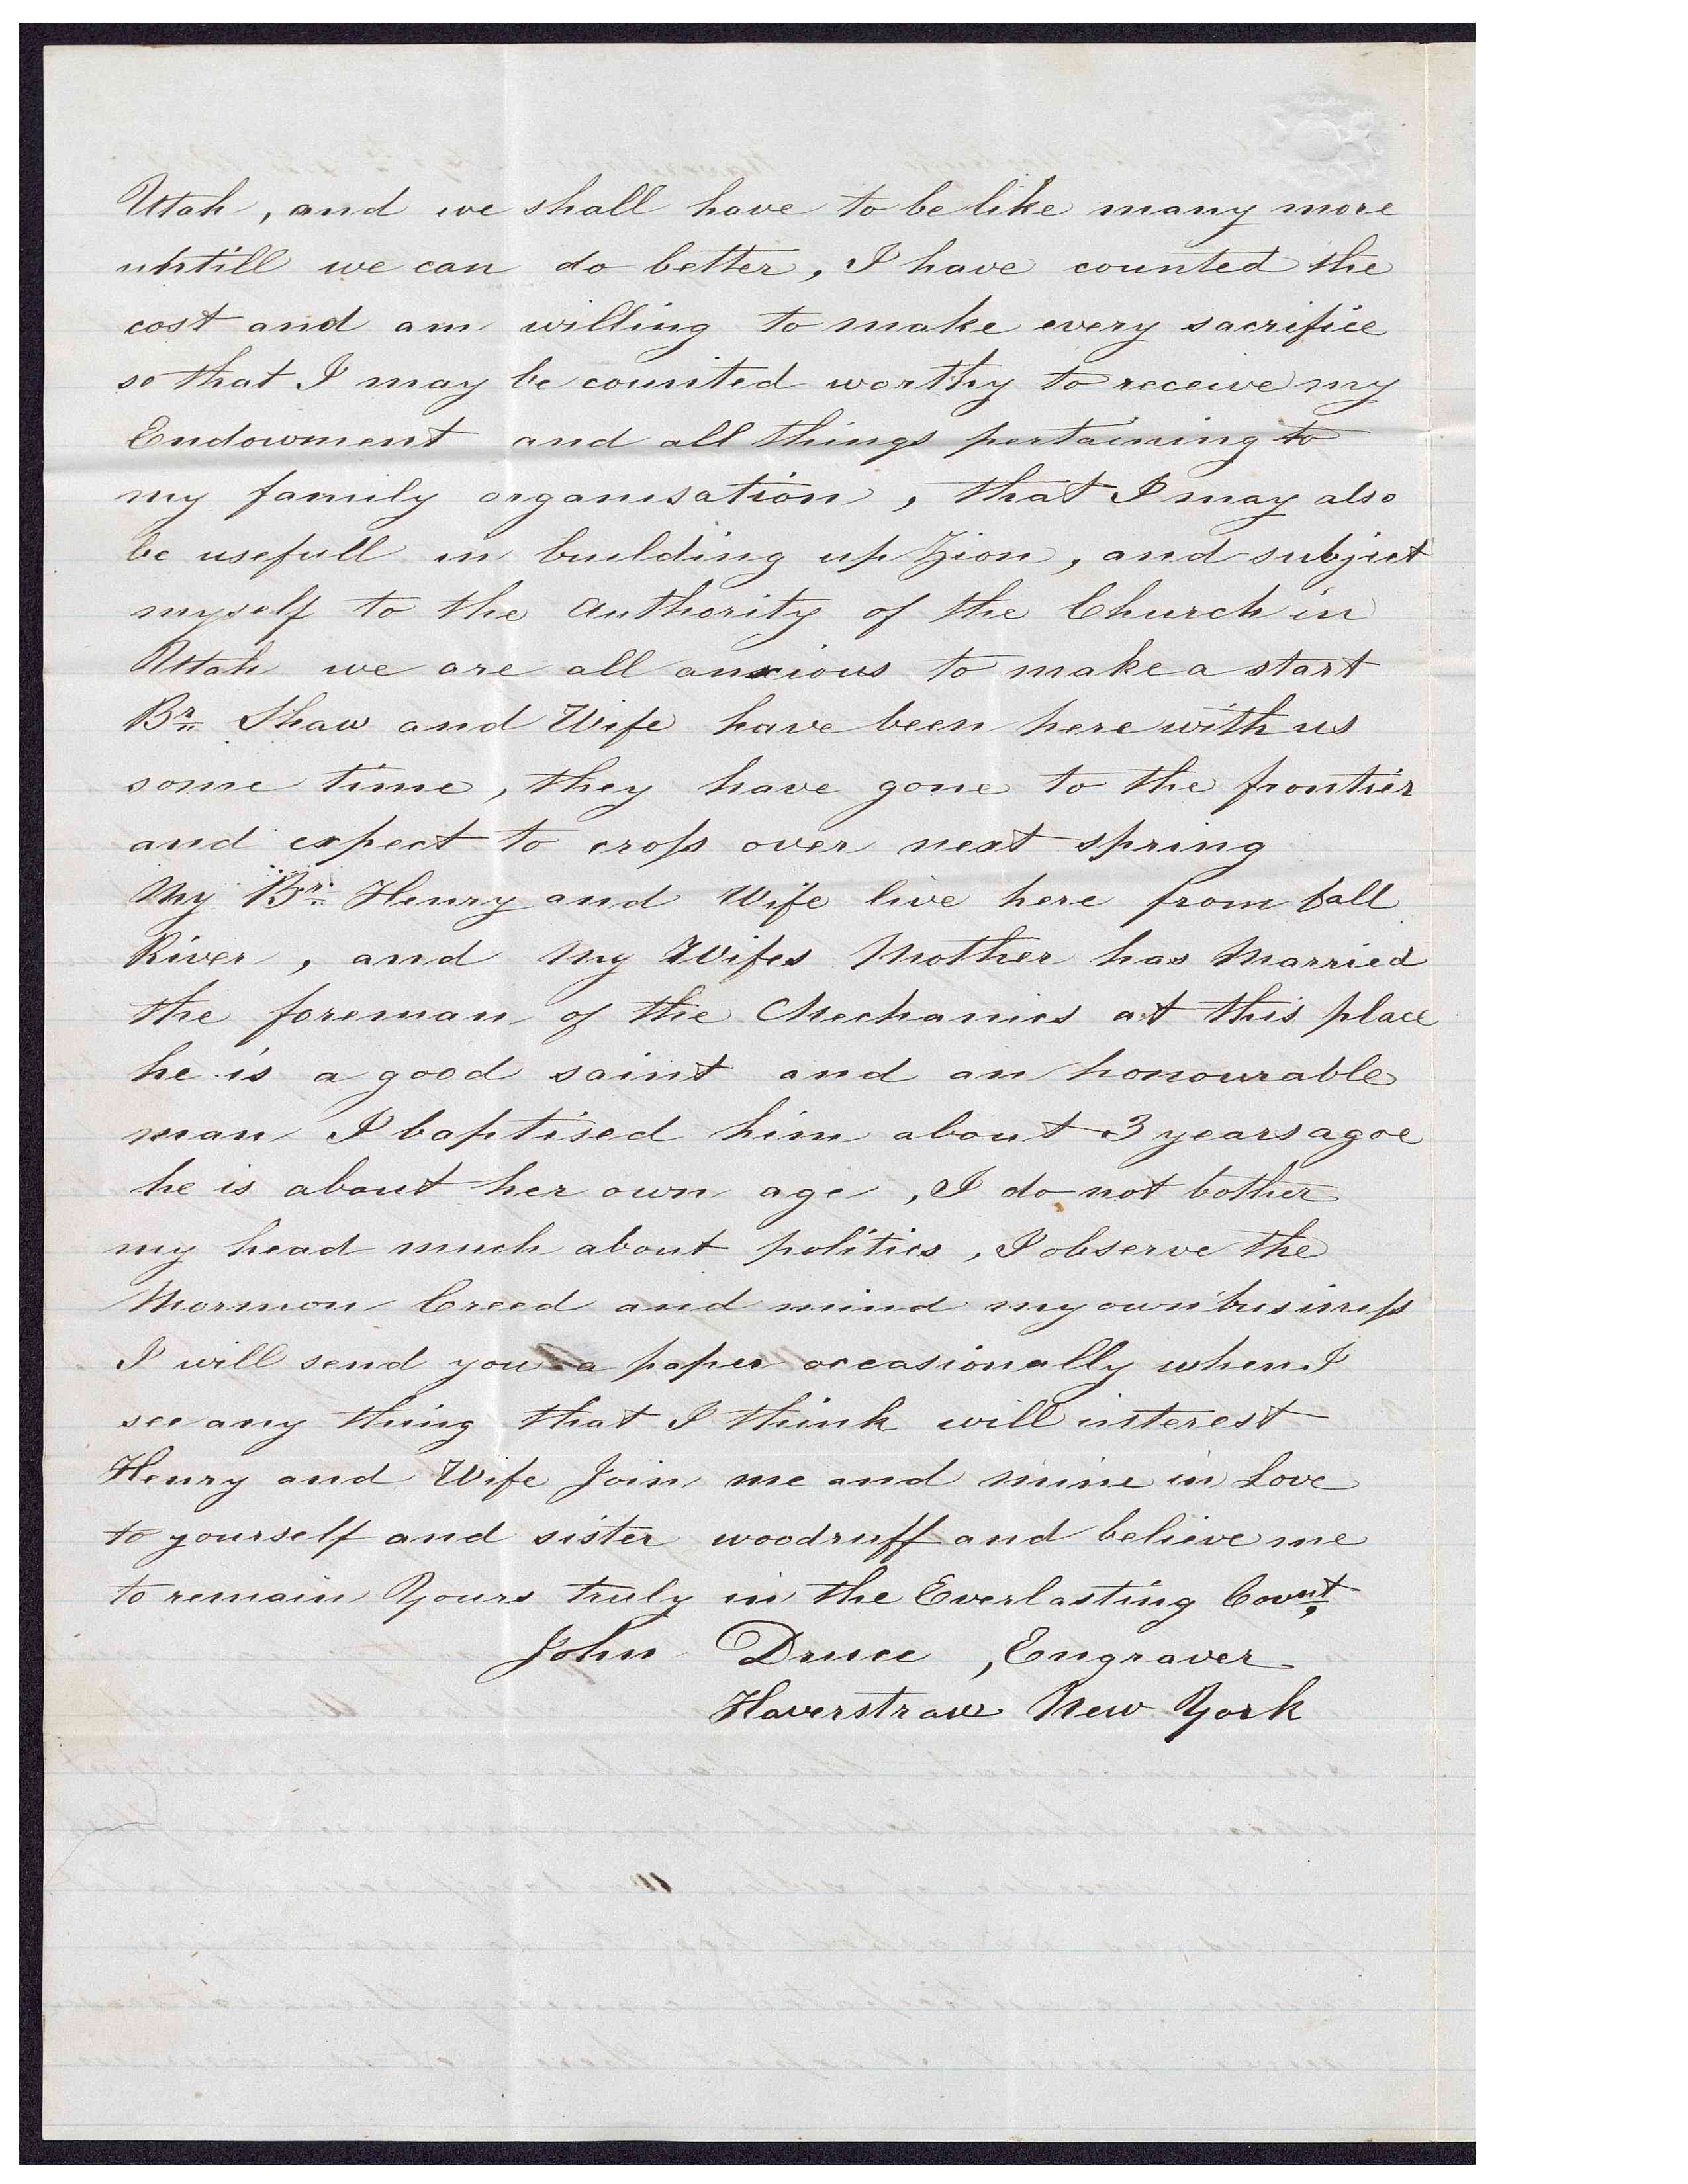 Utah, and we shall have to be like many more
untill we can do better, I have counted the
cost and am willing to make every sacrifice
so that I may be counted worthy to receive my
Endowment and all things pertaining to
my family organisation, that I may also
be usefull in building up Zion, and subject
myself to the Authority of the Church in
Utah we are all anxious to make a start
Br. Shaw and Wife have been here with us
some time, they have gone to the frontier
and expect to cross over next spring
My Br. Henry and Wife live here from fall
River, and My Wifes Mother has Married
the foreman of the Mechanics at this place
he is a good saint and an honourable
man I baptised him about 3 years agoe
he is about her own age, I do not bother
my head much about politics, I observe the
Mormon Creed and mind my own business
I will send you a paper occasionally when I
see any thing that I think will interest
Henry and Wife Join me and mine in Love
to yourself and sister woodruff and believe me
to remain Yours truly in the Everlasting Covnt,
John Druce, Engraver
Haverstraw New York